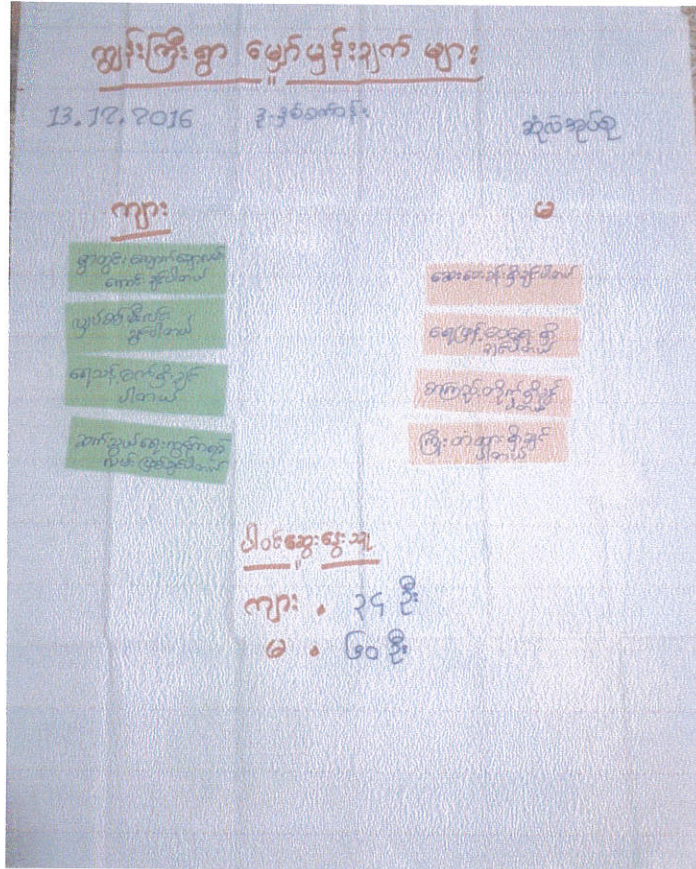 ကျွန်းကြီးရွာ မျှော်မှန်းချက် များ
13.12.2016
ဆုံလဲအုပ်စု
ကျား
မ
ရွာတွင်းလျှောက်သွားလမ်း
ကောင်းချင်ပါတယ်
လျှပ်စစ်မီးလင်း
ချင်ပါတယ်
ရေသန့်စက်ရှိချင်
ပါတယ်
ဆက်သွယ်ရေးကွန်ကရစ်
လမ်းဖြစ်ချင်ပါတယ်
ဆေးပေးခန်းရှိချင်ပါတယ်
ရေဖြန့်ဝေရေးရှိ
ချင်ပါတယ်
စာကြည့်တိုက်ရှိချင်
ပါတယ်
ကြိုးတံတားရှိချင်
ပါတယ်
ပါဝင်ဆွေးနွေးသူ
ကျား • ၃၄ ဦး
မ • ၆၀ ဦး